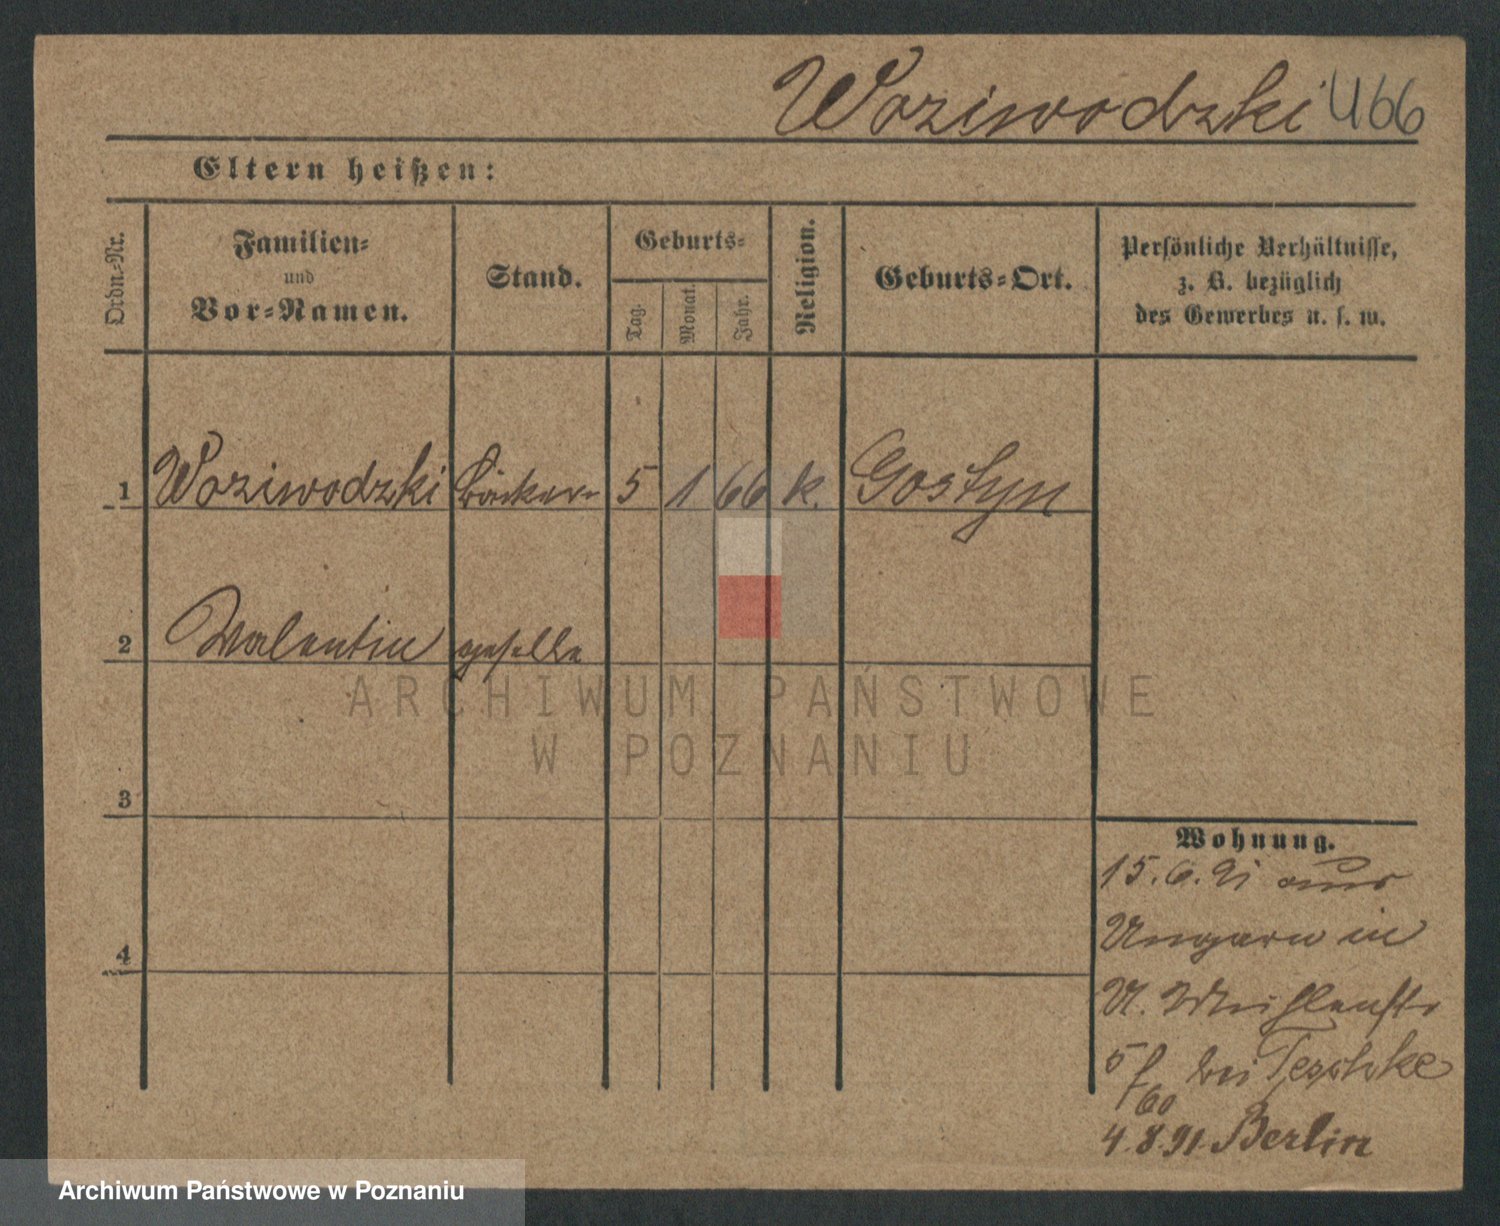 Woziwodzki 466
Eltern heißen:
Ordn.=Nr.
Familien=
und
Vor=Namen.
Stand.
Geburts=
Tag.
Monat.
Jahr.
Religion.
Geburts=Ort.
Persönliche Verhältnisse,
z. B. bezüglich
des Gewerbes u. s. w.
1 Woziwodzki Bäcker= 5 1 66 k. Gostyn
2 Valentin geselle
3
4
Wohnung.
15.6.91 aus
Ungarn in
U. Mühlenstr
5 bei Teschke
4.8.91. Berlin
ARCHIWUM PAŃSTWOWE
W POZNANIU
Archiwum Państwowe w Poznaniu